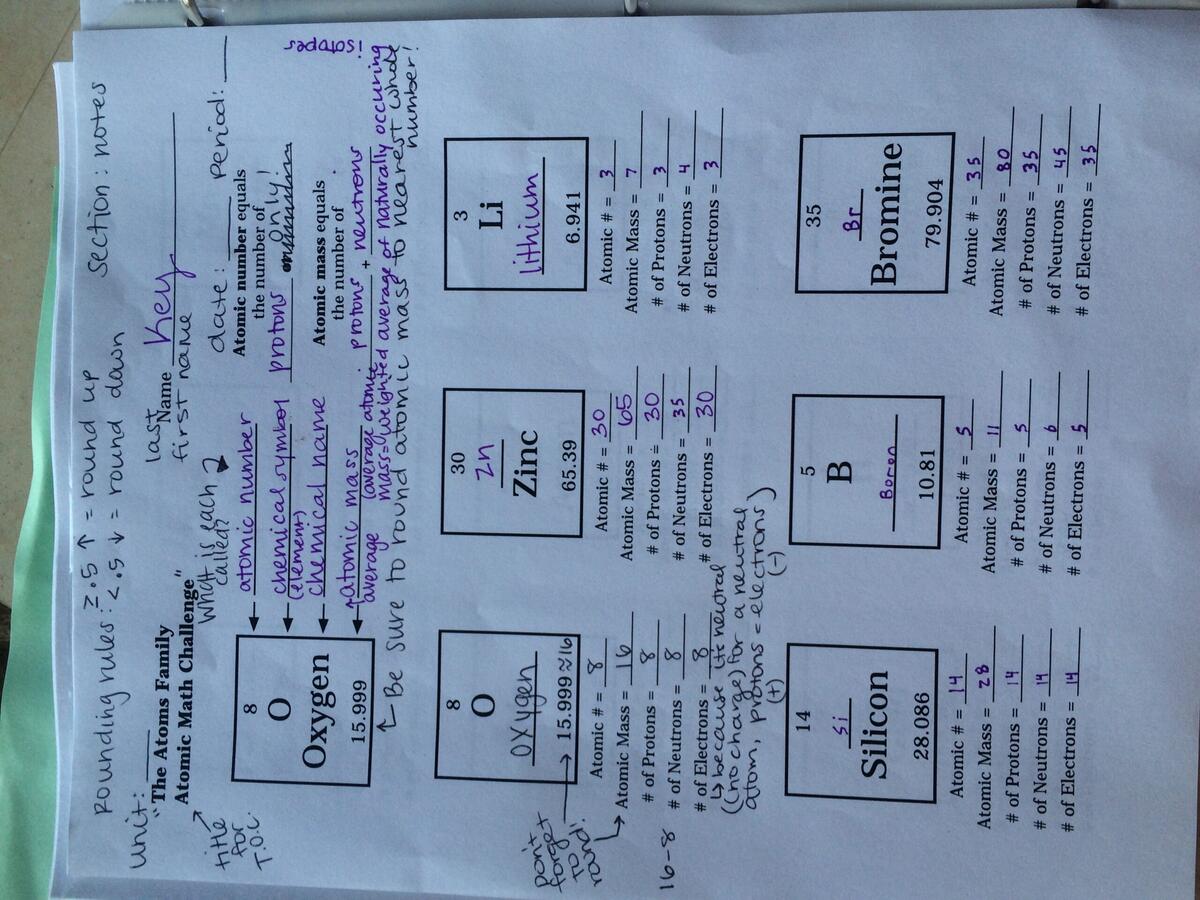 Rounding rules: ≥.5 ↑ = round up
<.5 ↓ = round down
section: notes
unit:
"The Atoms Family
Atomic Math Challenge"
title for T.O.C.
last
Name Key
first name
date: ____ period: ____
What is each called?
8
O
Oxygen
15.999
← atomic number
← chemical symbol
(element)
← chemical name
← atomic mass
average
(average atomic
mass=weighted average of naturally occuring
Atomic number equals
the number of
protons only!
Atomic mass equals
the number of
protons + neutrons.
Be sure to round atomic mass to nearest whole
number!
8
O
oxygen
15.999 ≈16
don't
forget
to
round!
Atomic # = 8
Atomic Mass = 16
# of Protons = 8
16-8
# of Neutrons = 8
# of Electrons = 8
↳ because it's neutral
(no charge) for a neutral
atom, protons = electrons)
(+) (-)
30
Zn
Zinc
65.39
Atomic # = 30
Atomic Mass = 65
# of Protons = 30
# of Neutrons = 35
# of Electrons = 30
3
Li
lithium
6.941
Atomic # = 3
Atomic Mass = 7
# of Protons = 3
# of Neutrons = 4
# of Electrons = 3
14
Si
Silicon
28.086
Atomic # = 14
Atomic Mass = 28
# of Protons = 14
# of Neutrons = 14
# of Electrons = 14
5
B
Boron
10.81
Atomic # = 5
Atomic Mass = 11
# of Protons = 5
# of Neutrons = 6
# of Electrons = 5
35
Br
Bromine
79.904
Atomic # = 35
Atomic Mass = 80
# of Protons = 35
# of Neutrons = 45
# of Electrons = 35